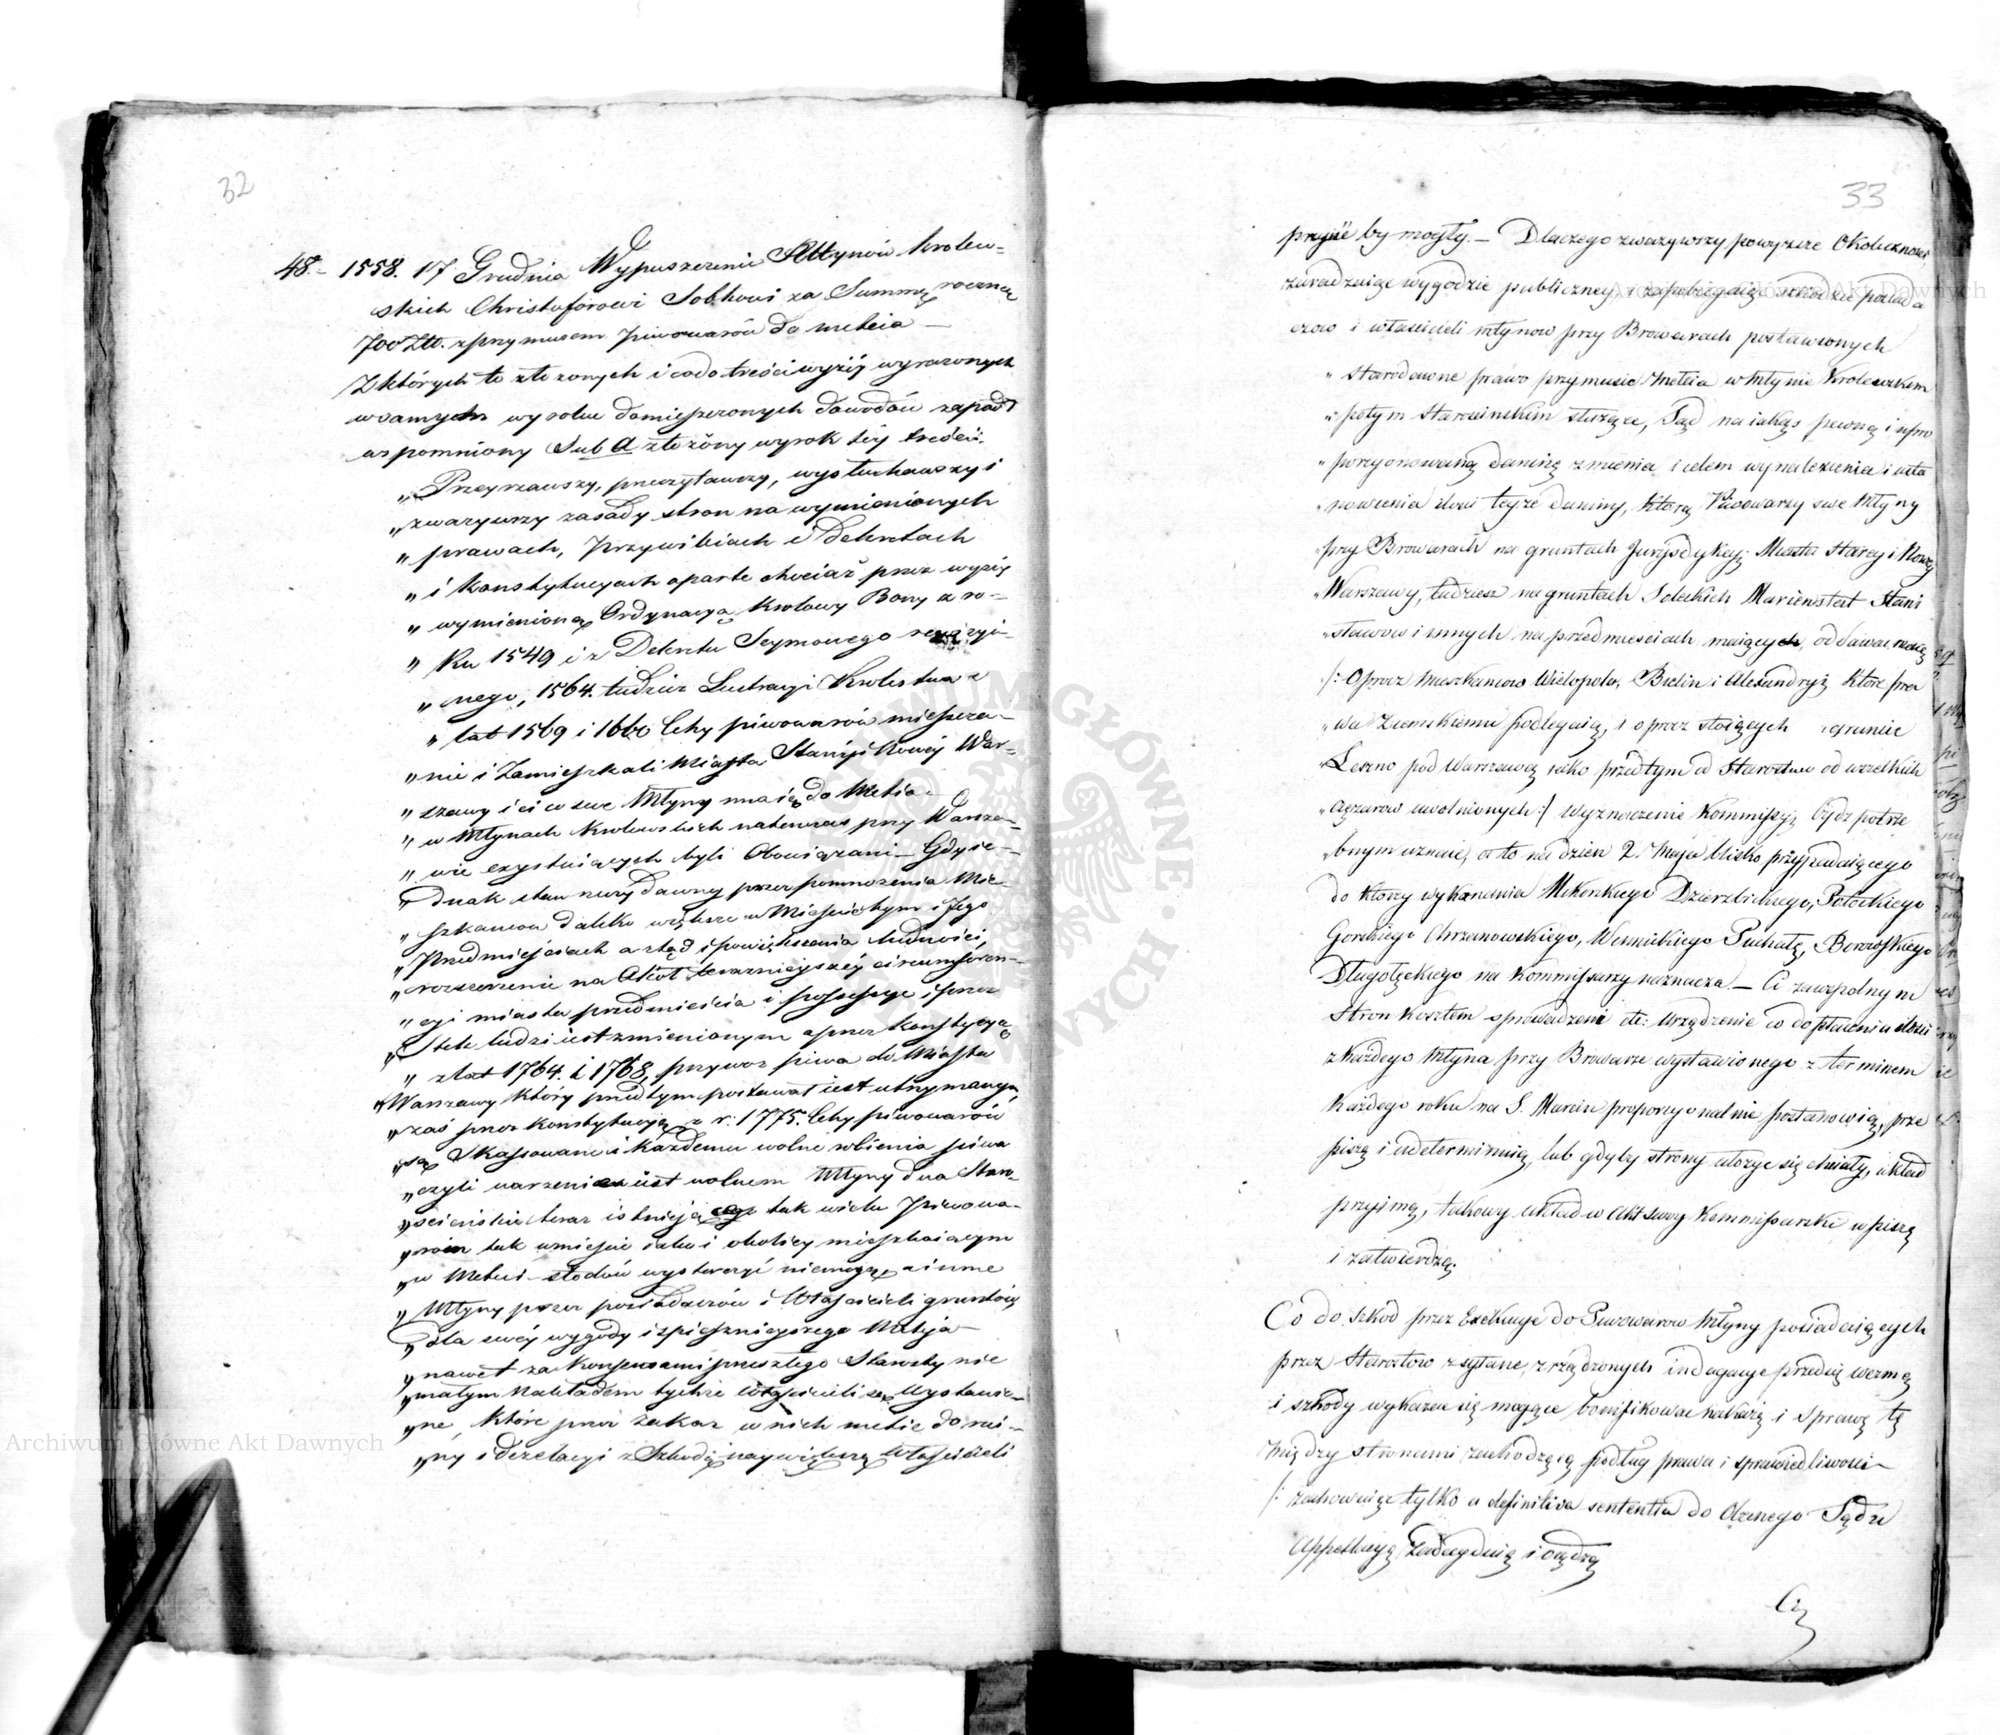 32
48.- 1558. 17 Grudnia Wypuszczenie Młynów krolew-
skich Christoforowi Sobkowi za Summę roczną
700 Złł. z przymusem piwowarów do mlecia —
Z których to złożonych i co do treści wyżéy wyrażonych
w samych wyroku domieszczonych dowodów zapadł
wspomniony Sub A złożony wyrok téy treści.
„Przeyrzawszy, przeczytawszy, wysłuchawszy i
„zważywszy zasady stron na wymienionych
„prawach, Przywileiach i Dekretach
„i konstytucyach oparte chociaż przez wyżéy
„wymienioną Ordynacyą Krolowy Bony z ro-
„ku 1549 i z Dekretu Seymowego
„nego, 1564. tudzież Lustracyi Krolestwa z
„lat 1569 i 1660 Cechy piwowarów mieszcza-
„nie i Zamieszkali Miasta Staréy i Nowéy War-
„szawy i ci co swe Młyny maią do Mlecia
„w Młynach Krolewskich natenczas przy Warsza-
„wie exystuiących byli Obowiązani — Gdy ie-
„dnak stan rzeczy dawny przez pomnożenia Mie-
„szkancow daleko większe w Mieście tym i Jego
„Przedmieściach a ztąd i powiększenia ludności,
„rozszerzenie na Około teraznieyszéy circumferen-
„cyi miasta przedmieścia i possessye i przez
„tych ludzi iest zmienionym a przez konstytucyą
„z lat 1764. i 1768, przywoz piwa do Miasta
„Warszawy który przedtym postawał iest utrzymanym,
„zaś przez konstytucyą z r. 1775. Cechy piwowarów
„są skassowane i każdemu wolne robienia piwa
„czyli warzenie iest wolnem Młyny dwa Staro-
„ścińskie teraz istnieją tak wielu Piwowa-
„rom tak w mieście iako i okolicy mieszkaiącym
„w Mleciu słodów wystarczyć niemogą a inne
„Młyny przez posiadaczów i Właścicieli gruntów
„dla swéy wygody i spiesznieyszego Mlecia
„nawet za konsensami przeszłego Starosty nie
„małym nakładem tychże Właścicieli są wystawio-
„ne, które przez zakaz w nich mlecie do rui-
„ny i dezelacyi z Szkodą naywiększą Właścicieli
33
przyiść by mogły. — Dlaczego zważywszy powyższe Okoliczności,
zaradzaiąc wygodzie publiczney i zapobiegaiąc szkodzie posiada
czow i właścicieli młynow przy Browarach postawionych
„starodawne prawo przymusu mlecia w młynie Krolewskim
„potym Starościnskim służące, Sąd na iakąś pewną i upro
„porcyonowaną daninę zmienia i celem wynalezienia i usta
„nowienia ilości teyże daniny, którą Piwowarzy swe Młyny
„przy Browarach na gruntach Jurysdykcyi Miasta Starey i Nowey
„Warszawy, tudziesz na gruntach Soleckich Marienstat Stani
„sławow i innych na przedmieściach maiących, oddawać maią
/: Oprocz mieszkancow Wielopola, Bielin i Alexandryi które pra
„wu Ziemskiemu podlegaią, i oprocz stoiących gruncie
„Leszno pod Warszawą iako przedtym od Starostwa od wszelkich
„ciężarow uwolnionych :/ wyznaczenie Kommissyi bydz potrze
„bnym uznaie, a to na dzien 2. Maja blisko przypadaiącego
do którey wykonania Mokorskiego Dzierzbickiego, Potockiego
Gorskiego Chrzanowskiego, Puchałę, Borowskiego
Długołęckiego na Kommissarzy naznacza. — Ci zawspolnym
Stron kosztem sprowadzeni etc: Urządzenie co do płacenia ilości
z każdego młyna przy Browarze wystawionego z terminem
Każdego roku na S. Marcin proporcyonalnie postanowią, prze
piszą i udeterminuią, lub gdyby strony ułożyć się chciały, układ
przyimą, takowy układ w Akt sawy Kommissarski wpiszą
i zatwierdzą.
Co do szkod przez Exekucye do Piwowarow młyny posiadaiących
przez Starostow zsyłane, zrządzonych indagacye przedsięwezmą
i szkody wykazać się mogące bonifikować nakażą i sprawę tę
między stronami zachodzącą podług prawa i sprawiedliwości
/: zachowuiąc tylko a definitiva sententia do Ocznego Sądu
Appellacyą zadecyduią i osądzą
Czy